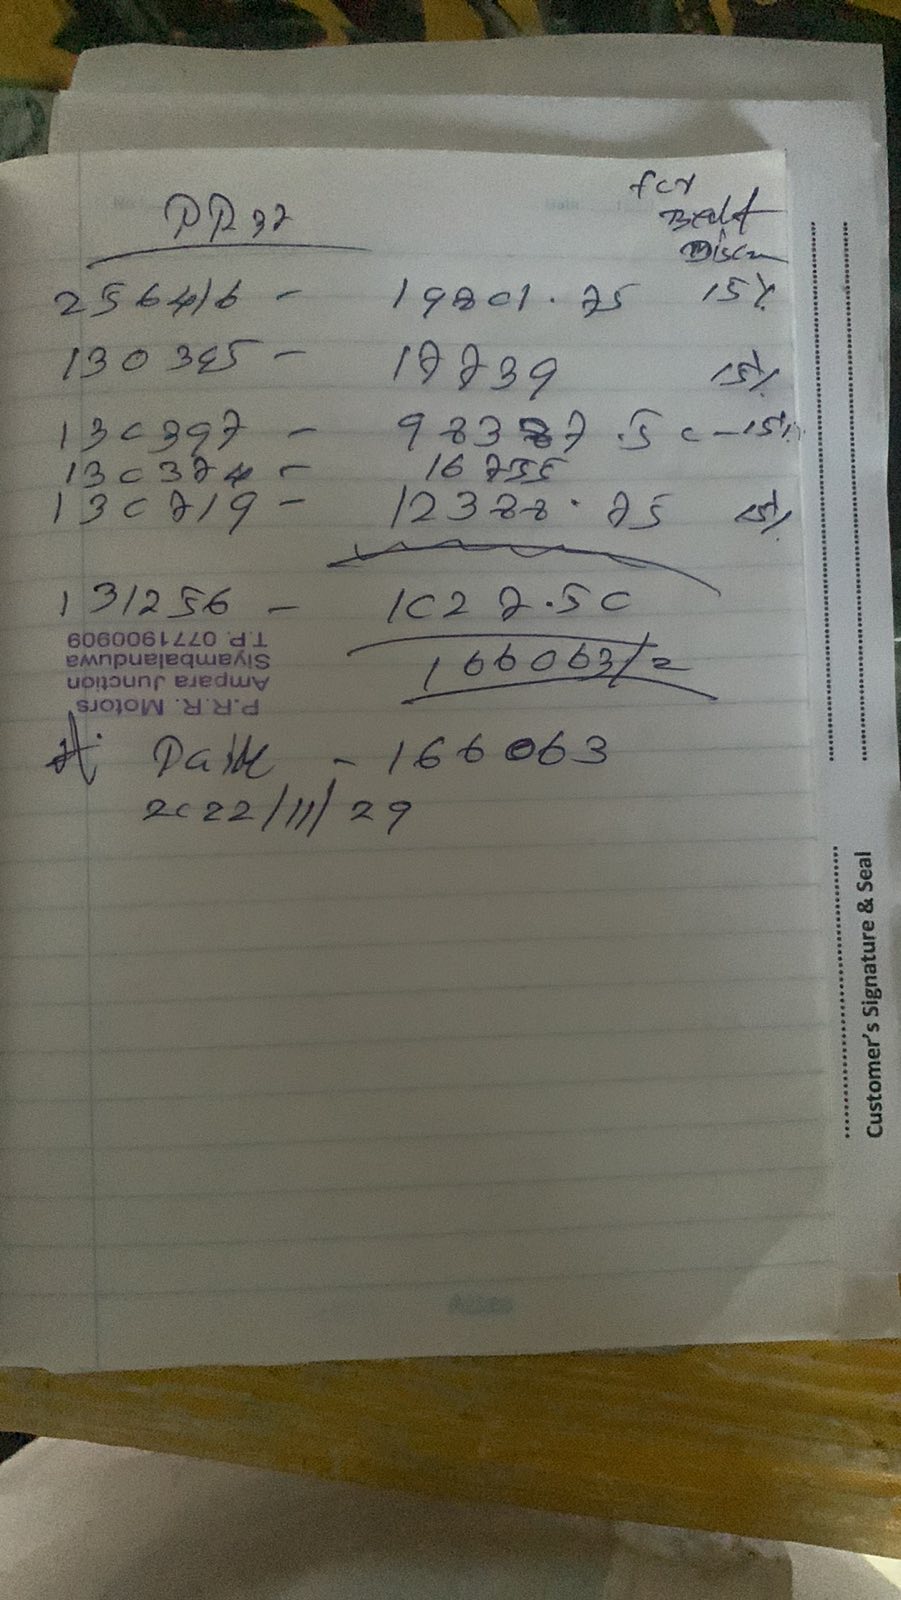 for
256416 - 19801.75 15%
130395 - 17739 15%
130397 - 98387.50 - 15%
130374 - 16755
130719 - 12388.75 15%
131256 - 1027.50
166063/2
P.R.R. Motors
Ampara Junction
Siyambalanduwa
T.P. 0771900909
- 166063
2022/11/29
Customer's Signature & Seal